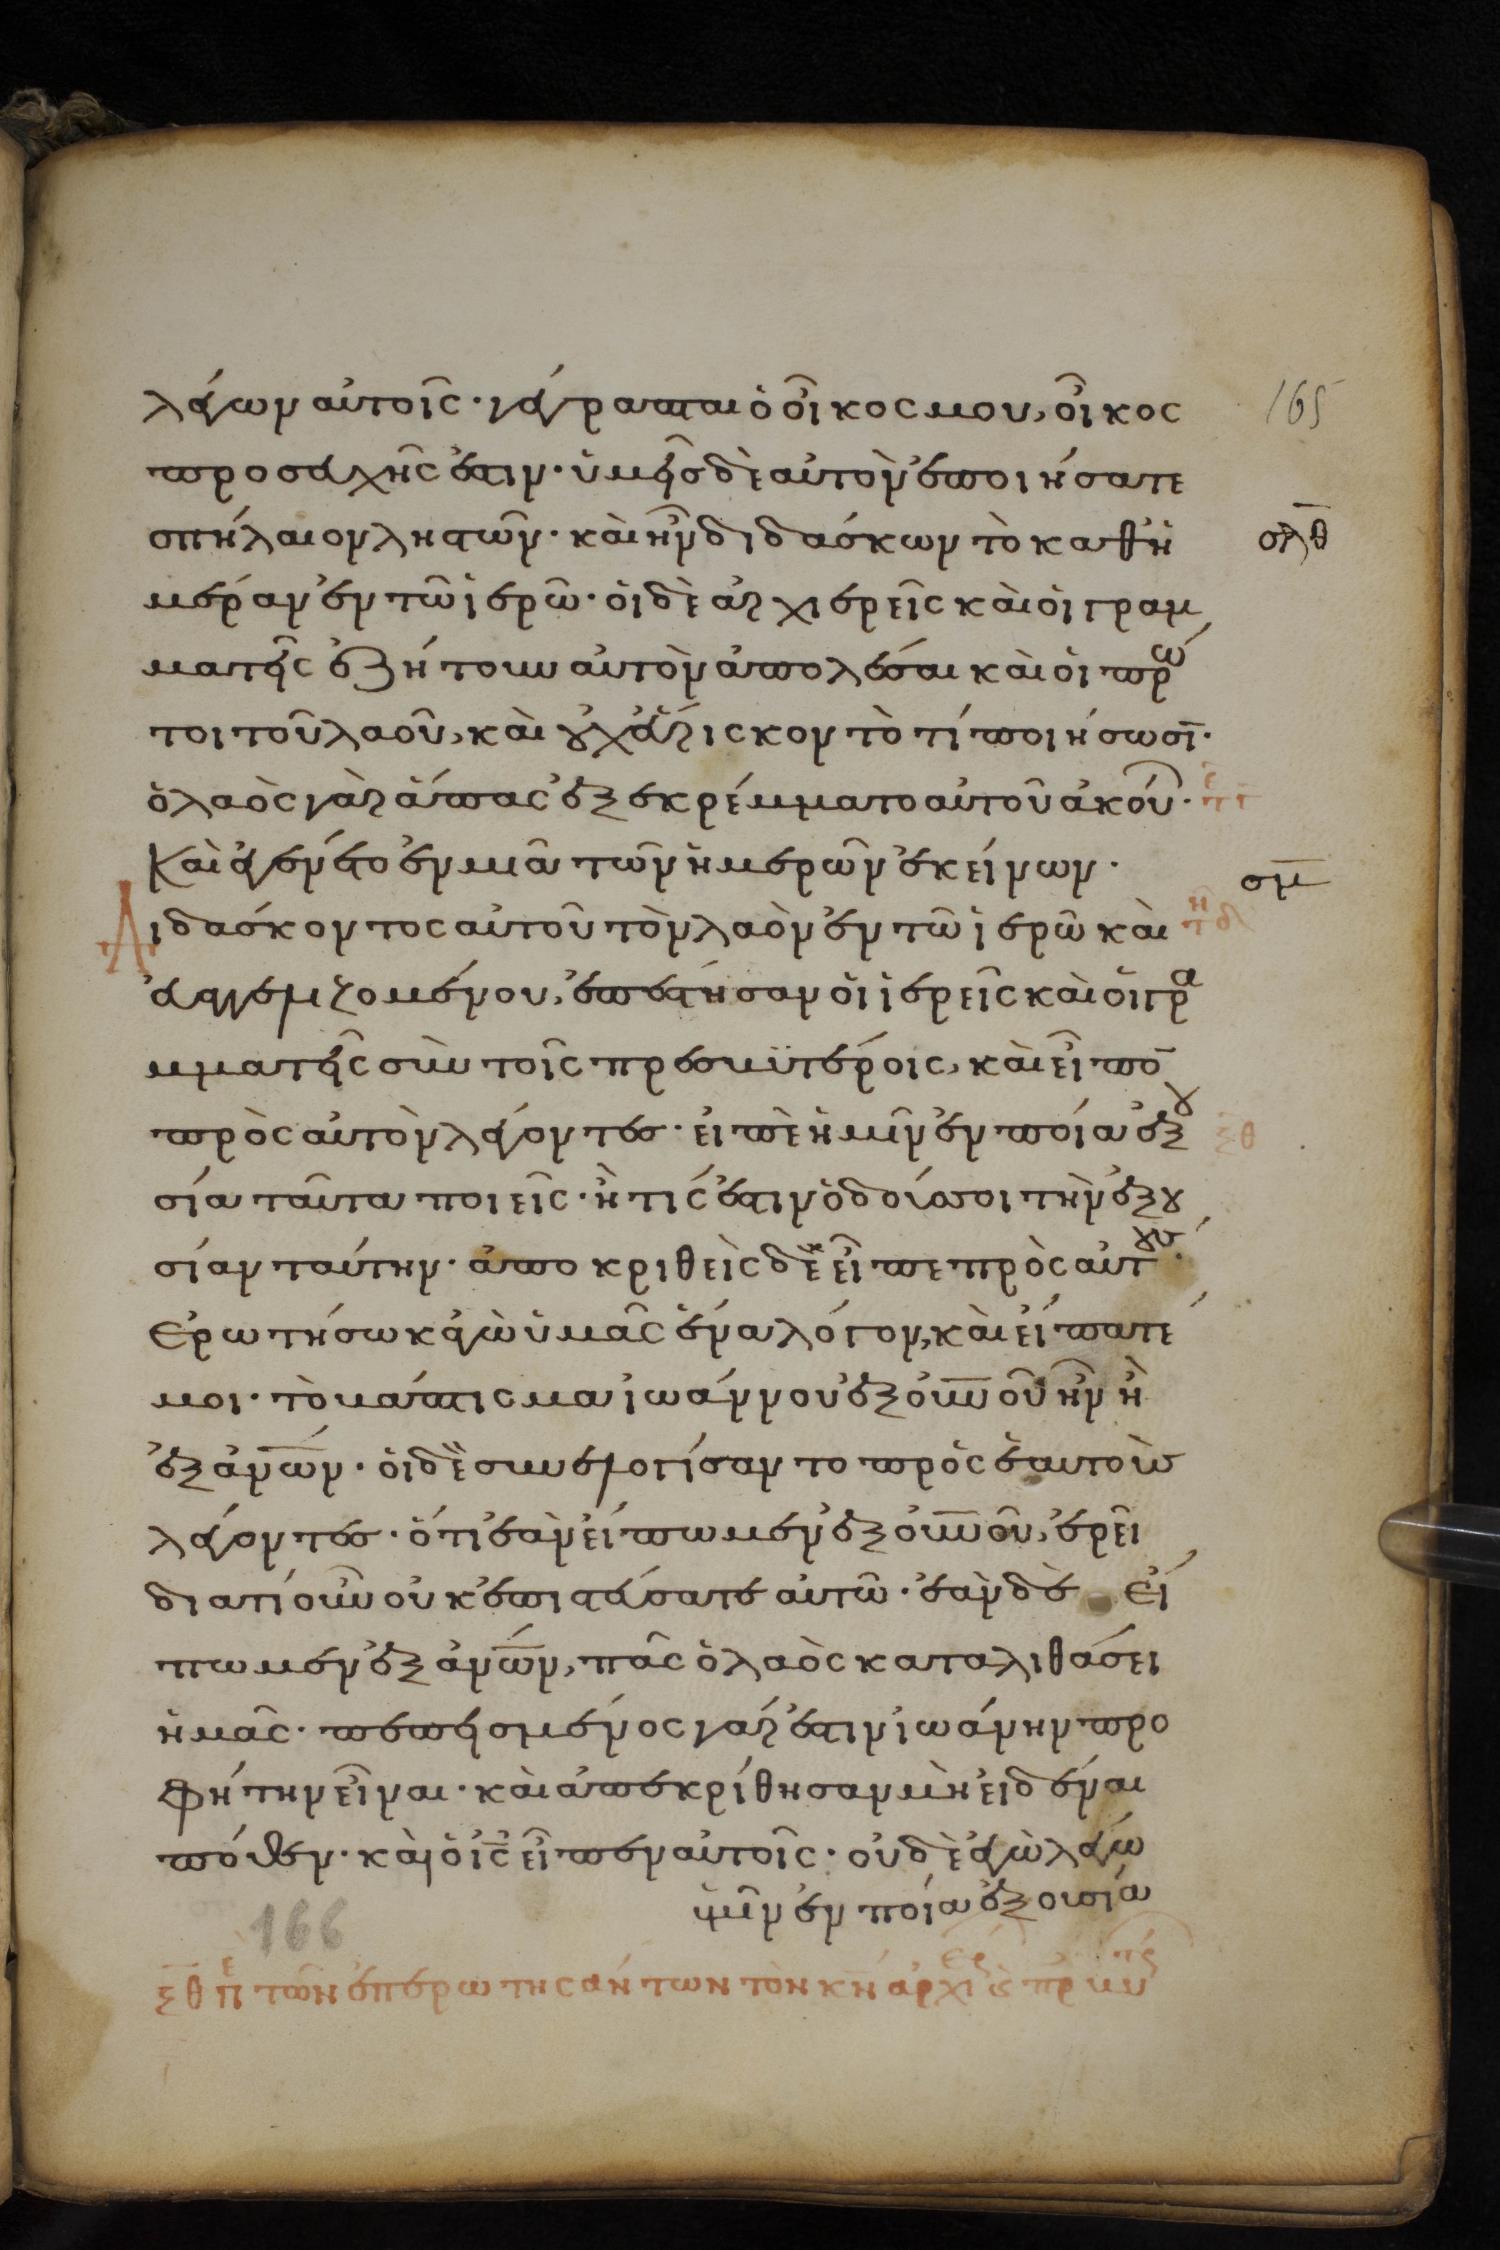 λέγων αὐτοῖς· γέγραπται ὁ οἶκος μου, οἶκος
προσευχῆς ἐστιν· ὑμεῖς δὲ αὐτὸν ἐποιήσατε
σπήλαιον ληστῶν· καὶ ἦν διδάσκων τὸ καθ' ἡ
σλθ
μέραν ἐν τῶ ἱερῶ· οἱ δὲ ἀρχιερεῖς καὶ οἱ γραμ
ματεῖς ἐζήτουν αὐτὸν ἀπολέσαι καὶ οἱ πρώ
τοι τοῦ λαοῦ, καὶ οὐχ εὕρισκον τὸ τί ποιήσωσῑ·
ὁ λαὸς γὰρ ἅπας ἐξεκρέμματο αὐτοῦ ἀκού·
Καὶ ἐγένετο ἐν μιᾶ τῶν ἡμερῶν ἐκείνων·
σμ
Διδάσκοντος αὐτοῦ τὸν λαὸν ἐν τῶ ἱερῶ καὶ
εὐαγγελιζομένου, ἐπέστησαν οἱ ἱερεῖς καὶ οἱ γρα
μματεῖς σὺν τοῖς πρεσβϋτέροις, καὶ εἶπο̄
πρὸς αὐτὸν λέγοντες· εἰπὲ ἡμῖν ἐν ποία ἐξου
ξθ
σία ταῦτα ποιεῖς· ἢ τίς ἐστιν ὁ δούς σοι τὴν ἐξου
σίαν ταύτην· ἀποκριθεὶς δὲ εἶπε πρὸς αὐτούς·
Ἐρωτήσω κἀγὼ ὑμᾶς ἕνα λόγον, καὶ εἴπατέ
μοι· τὸ βάπτισμα ἰωάννου ἐξ οὐνοῦ ἦν ἢ
ἐξ ἀνῶν· οἱ δὲ συνελογίσαντο πρὸς ἑαυτοὺς
λέγοντες· ὅτι ἐὰν εἴπωμεν ἐξ οὐνοῦ, ἐρεῖ
διατί οὖν οὐκ ἐπιστεύσατε αὐτῶ· ἐὰν δὲ εἴ
πωμεν ἐξ ἀνῶν, πᾶς ὁ λαὸς καταλιθάσει
ἡμᾶς· πεπεισμένος γάρ ἐστιν ἰωάνην προ
φήτην εἶναι· καὶ ἀπεκρίθησαν μὴ εἰδέναι
πόθεν· καὶ ὁ ἰς εἶπεν αὐτοῖς· οὐδὲ ἐγὼ λέγω
ὑμῖν ἐν ποία ἐξουσία
166
ξθ π τῶν ἐπερωτησάντων τὸν κν ἀρχιερ
165